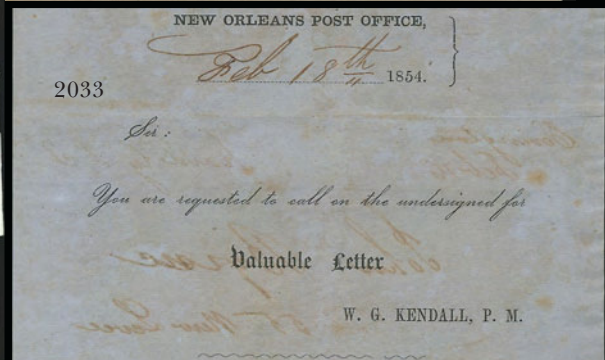 NEW ORLEANS POST OFFICE,
Feb 18th 1854.
2033
Sir:
You are requested to call on the undersigned for
Valuable Letter
W. G. KENDALL, P. M.